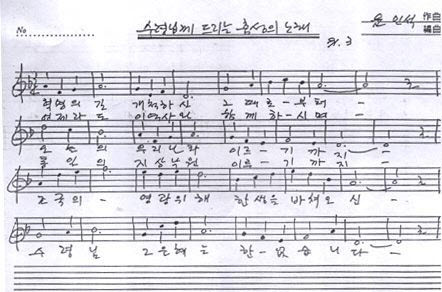 No
수령님께 드리는 충성의 노래
작曲
編曲
혁명의 길 개척하신 그 때로-부터 -
언제나 이역사와 함께 하시며 -
오 늘의 우리나라 이르-기까지 -
통일의 지상낙원 이루-기까지 -
조국의 - 영광위해 한생을 바쳐오신 -
수령님 그은혜는 한-없습니다 -